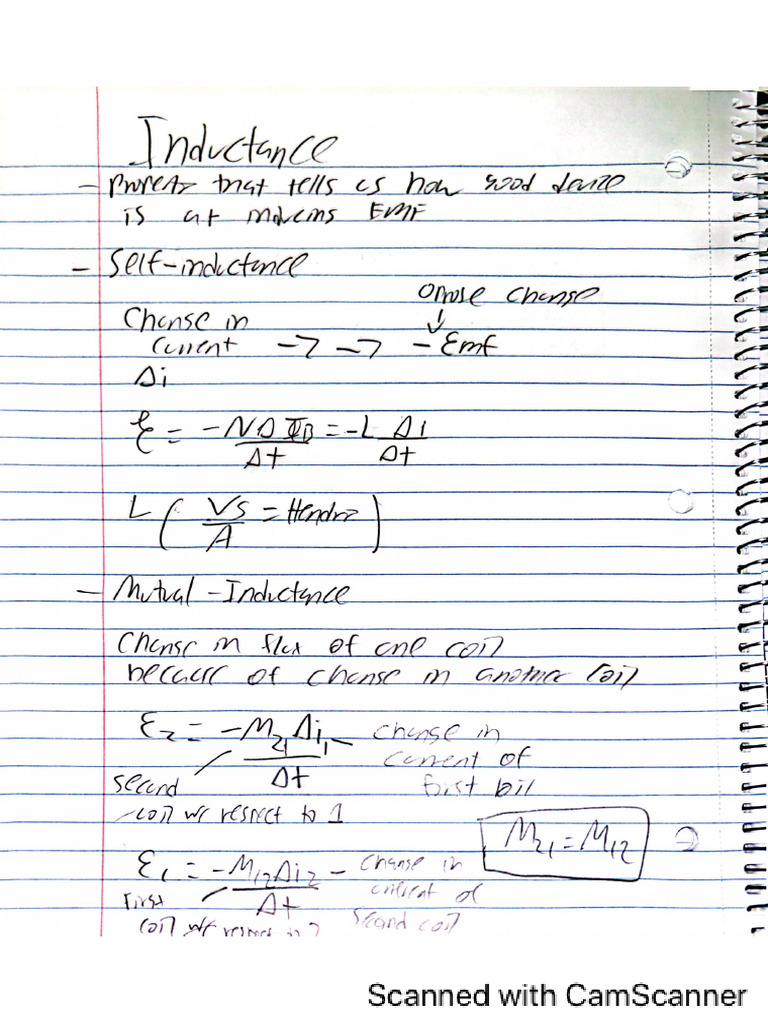 Inductance
- Property that tells us how good device
is at making EMF
- Self-inductance
oppose change
↓
Change in
current -> -> - Emf
Δi
ℰ = -NΔΦB/Δt = -L Δi/Δt
L (VS/A = Hendrz)
- Mutual-Inductance
Change in flux of one coil
because of change in another coil
ℰ2 = -M21Δi1/Δt - change in
current of
first coil
second
coil wr respect to 1
M21 = M12
ℰ1 = -M12Δi2/Δt - change in
current of
second coil
first
coil wr respect to 2
Scanned with CamScanner